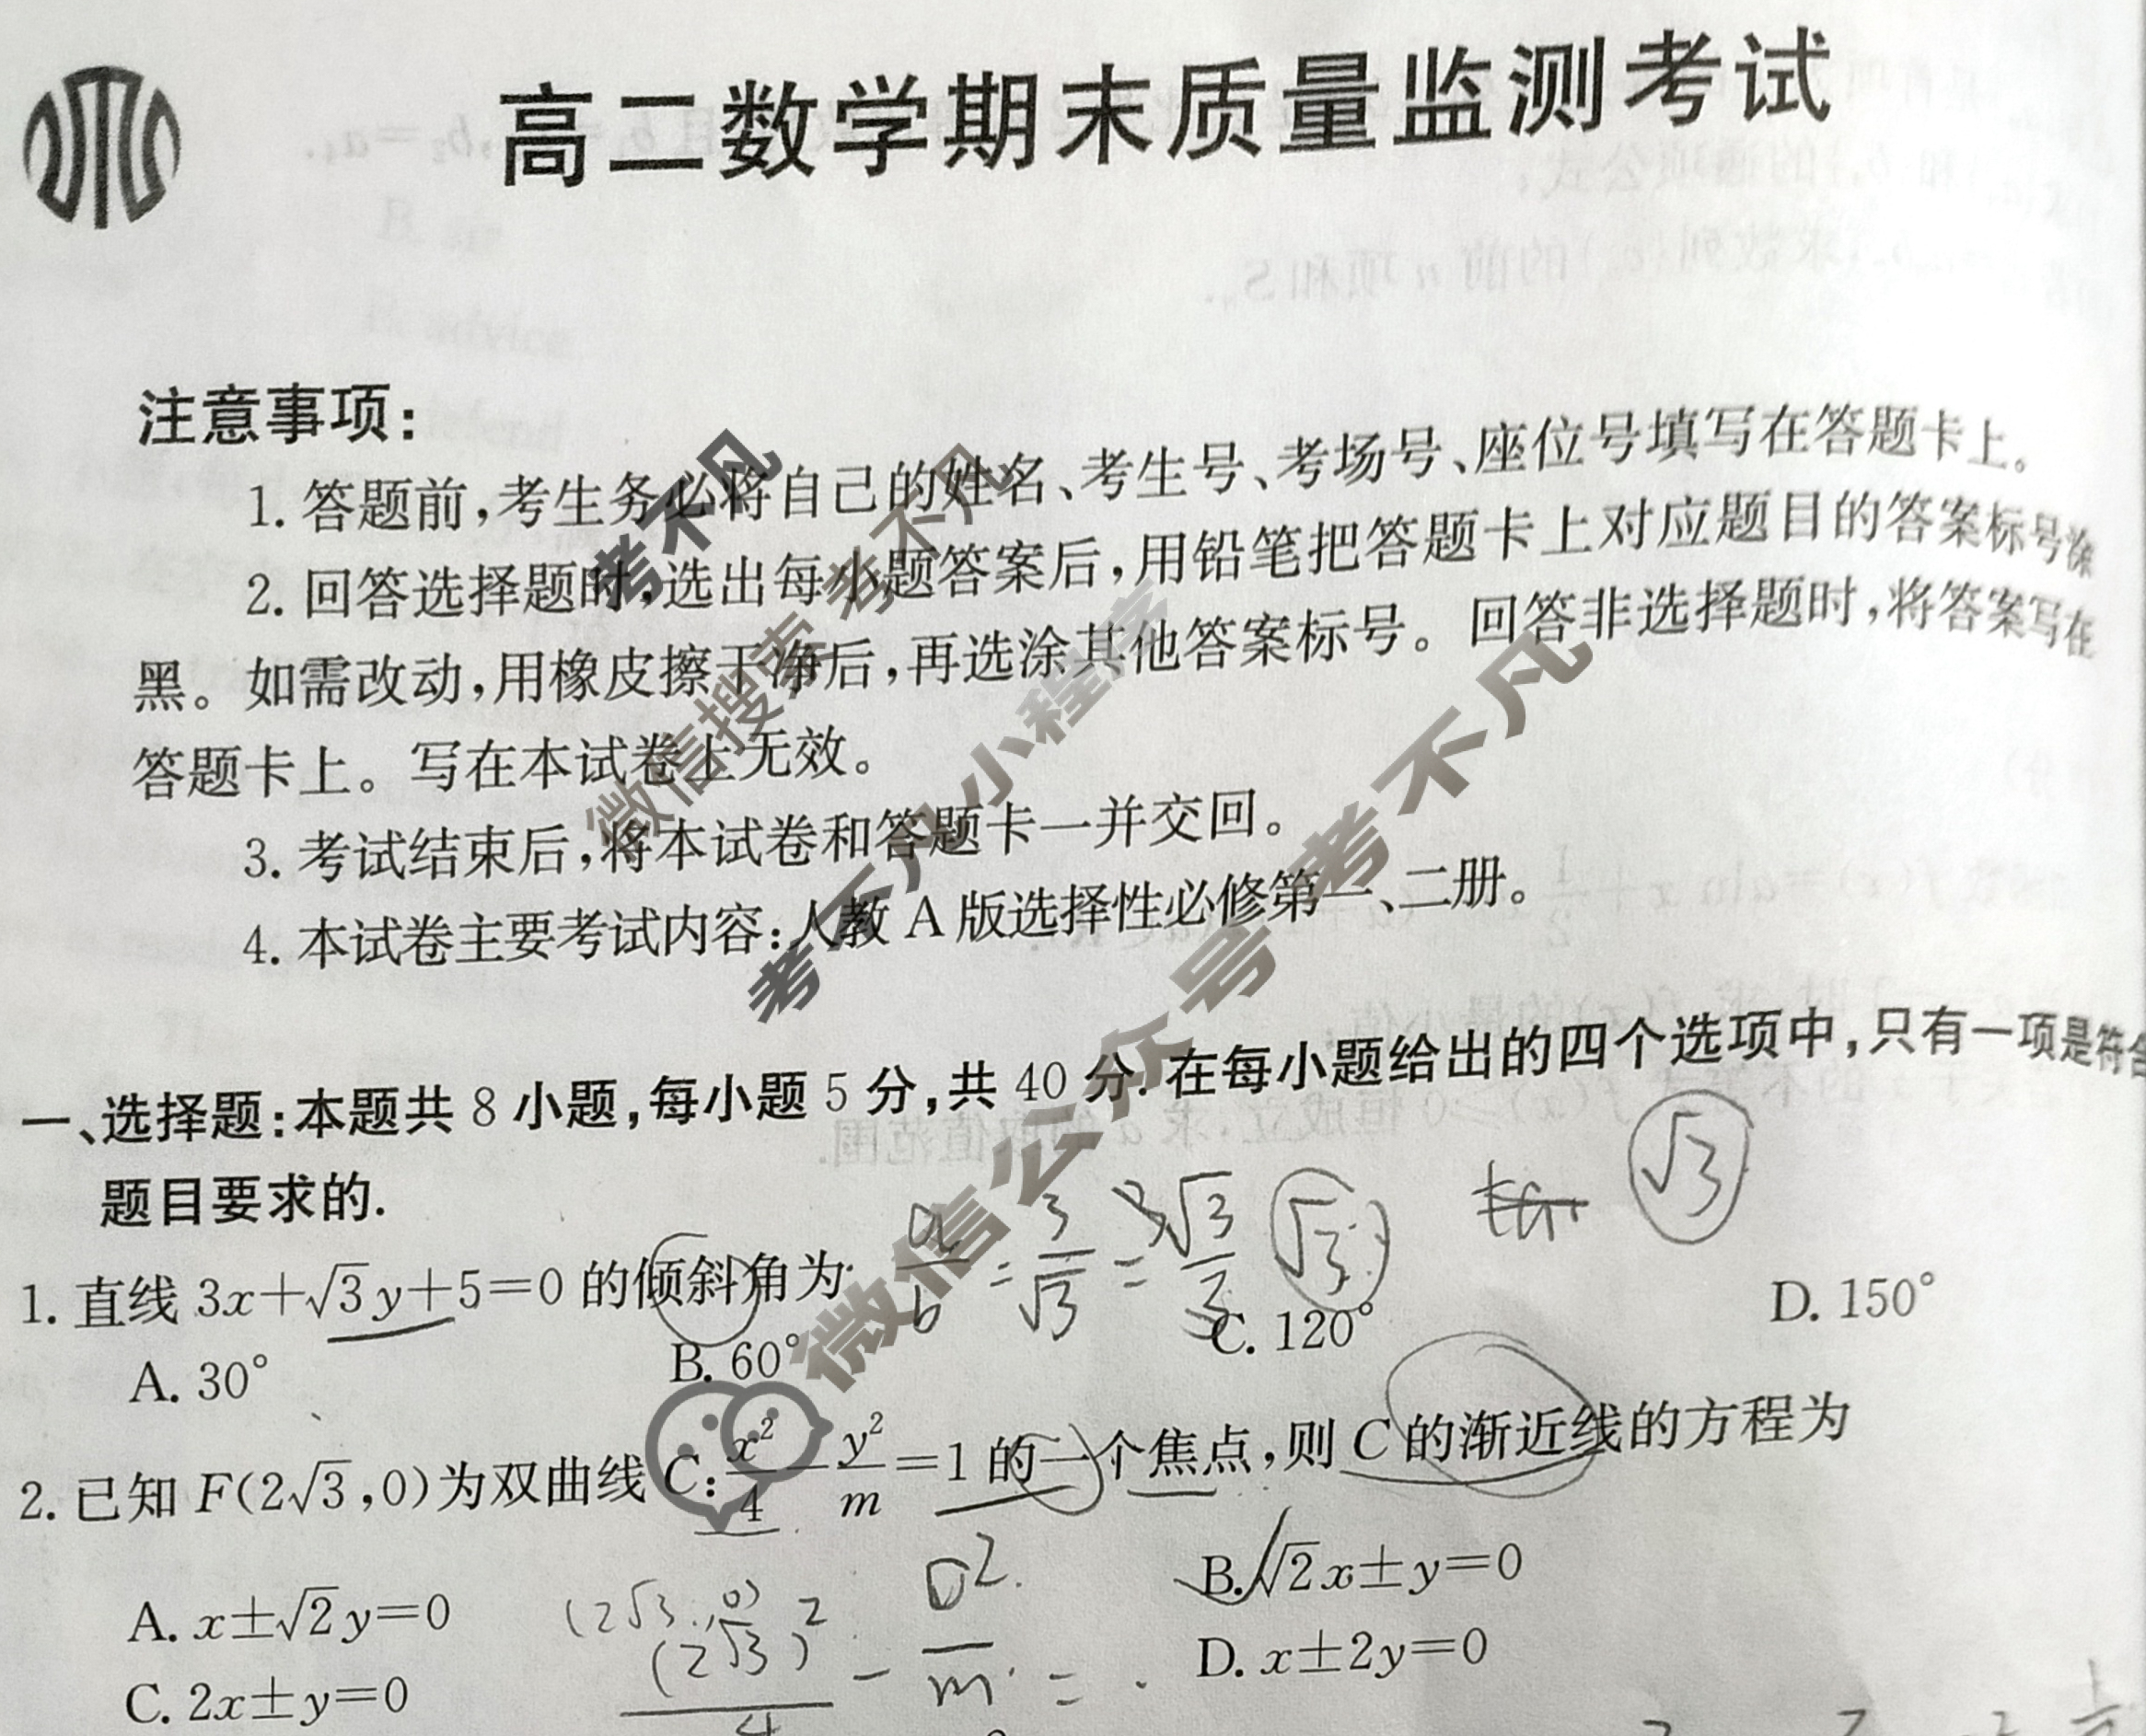 高二数学期末质量监测考试
注意事项:
1. 答题前,考生务必将自己的姓名、考生号、考场号、座位号填写在答题卡上。
2. 回答选择题时,选出每小题答案后,用铅笔把答题卡上对应题目的答案标号涂
黑。如需改动,用橡皮擦干净后,再选涂其他答案标号。回答非选择题时,将答案写在
答题卡上。写在本试卷上无效。
3. 考试结束后,将本试卷和答题卡一并交回。
4. 本试卷主要考试内容:人教 A 版选择性必修第一、二册。
考不凡
微信搜索 考不凡
考不凡小程序
微信公众号 考不凡
一、选择题:本题共 8 小题,每小题 5 分,共 40 分. 在每小题给出的四个选项中,只有一项是符合
题目要求的.
√3
a/b = 3/√3 = 3√3/3 √3
1. 直线 3x+√3y+5=0 的倾斜角为
A. 30° B. 60° C. 120° D. 150°
2. 已知 F(2√3,0)为双曲线 C: x²/4 − y²/m = 1 的一个焦点,则 C 的渐近线的方程为
A. x±√2y=0 B. √2x±y=0
C. 2x±y=0 D. x±2y=0
(2√3, 0)
(2√3)²/4 − 0²/m =